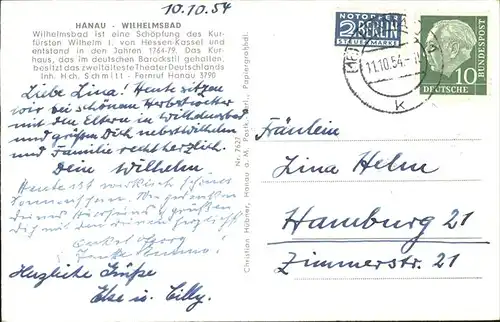 10.10.54
HANAU - WILHELMSBAD
Wilhelmsbad ist eine Schöpfung des Kur-
fürsten Wilhelm I. von Hessen-Kassel und
entstand in den Jahren 1764-79. Das Kur-
haus, das im deutschen Barockstil gehalten,
besitzt das zweitälteste Theater Deutschlands
Inh. Hch. Schmitt - Fernruf Hanau 3790
Liebe Lina! Heute sitzen
wir bei schönem Herbstwetter
mit den Eltern in Wilhelmsbad
und grüßen Dich nebst Wilhelm
und Familie recht herzlich.
Dein Wilhelm
Heute ist wirklich schönes
und grüßen
Onkel Georg
Tante
Herzliche Grüße
Else u. Cilly.
Christian Hübner, Hanau a. M. Postkarten, Papiergroßhdl.
Nr. 7627
NOTOPFER
2 BERLIN
STEUERMARKE
11.10.54
k
10
DEUTSCHE
BUNDESPOST
Fräulein
Lina Helm
Hamburg 21
Zimmerstr. 21